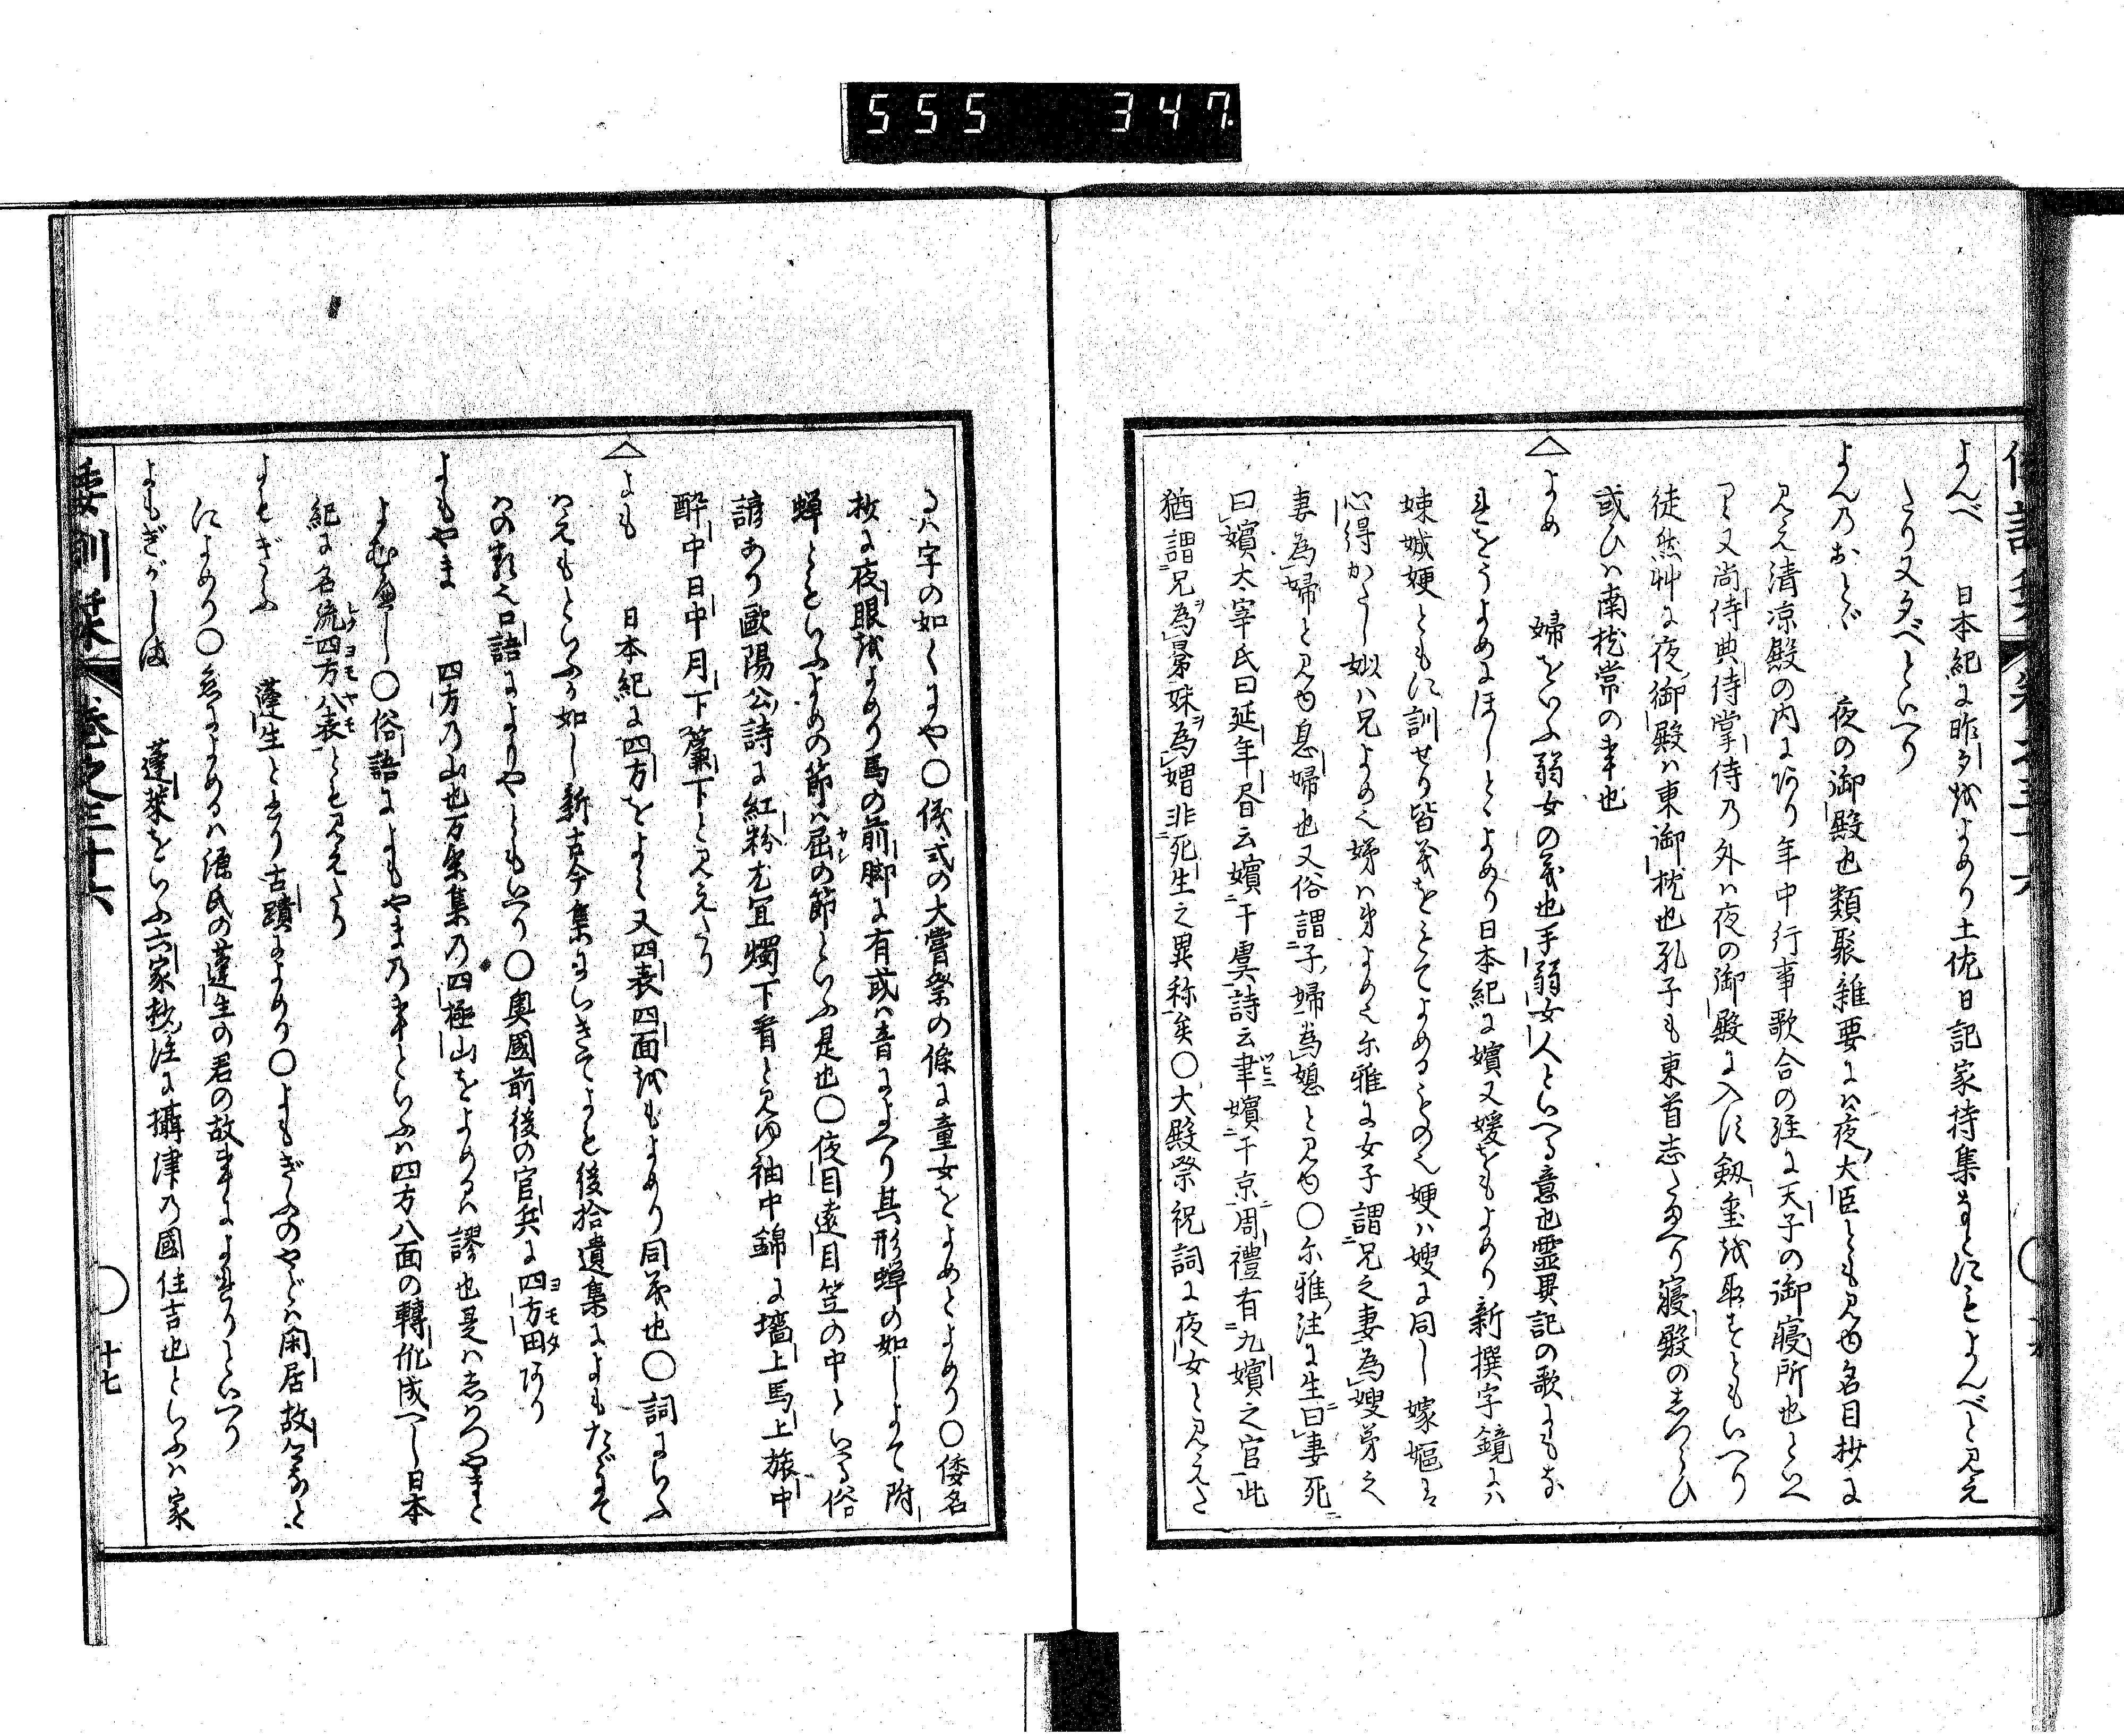 555 347.
よんべ 日本紀に昨夕をよめり土佐日記家持集などにもよんべと見え
たり又夕べといへり
よんのおとゞ 夜の御殿也類聚雑要には夜大臣とも見ゆ名目抄に
見え清凉殿の内にあり年中行事歌合の註に天子の御寝所也といへ
り又尚侍典侍掌侍の外は夜の御殿に入す剱璽を取すともいへり
徒然艸に夜御殿は東御枕也孔子も東首したまへり寝殿のしつらひ
或ひは南枕常の事也
△よめ 婦をいふ弱女の義也手弱女人といへる意也霊異記の歌にもな
れをそよめにほしとよめり日本紀に嬪又媛をもよめり新撰字鏡には
娕娍㛐ともに訓せり皆義をもてよめるもの也㛐は嫂に同し嫁嫗は
心得かたし姒は兄よめ也娣は弟よめ也尓雅に女子謂兄之妻為嫂弟之
妻為婦と見ゆ息婦也又俗謂子婦為媳と見ゆ○尓雅注に生曰妻死
曰嬪太宰氏曰延年昬云嬪于虞詩云聿嬪于京周禮有九嬪之官此
猶謂兄為㬱妹為媦非死生之異称矣○大殿祭祝詞に夜女と見えた
るは字の如くにや○儀式の大嘗祭の條に童女をよめとよめり○倭名
抄に夜眼をよめり馬の前脚に有或は音によへり其形蝉の如しよて附
蝉ともいふよめの節は屈の節といふ是也○夜目遠目笠の中といふ俗
諺あり歐陽公詩に紅粉尤宜燭下看と見ゆ袖中錦に墻上馬上旅中
酔中日中月下簾下と見えたり
△よも 日本紀に四方をよみ又四表四面をもよめり同義也○詞にいふ
はえもといふか如し新古今集にいきてよも後拾遺集によもたゞにて
はの類也口語によりやともいへり○奥國前後の官兵に四方田あり
よもやま 四方の山也万葉集の四極山をよめるは謬也是はしはつやまと
よむへし○俗語によもやまの事といふは四方八面の轉化成へし日本
紀に名流四方八表とも見えたり
よもぎふ 蓬生と書り古蹟によめり○よもぎふのやどは閑居故宅なと
によめり○恋によめるは源氏の蓬生の君の故事によれりといへり
よもぎがしま 蓬莱をいふ六家抄注に攝津の國住吉也といふは家
倭訓栞 巻之三十六 ○十七